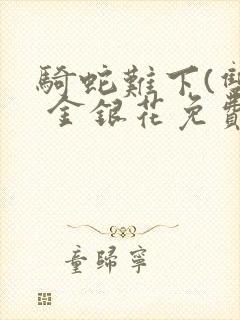 騎蛇難下(雙
金銀花免費
童歸寧